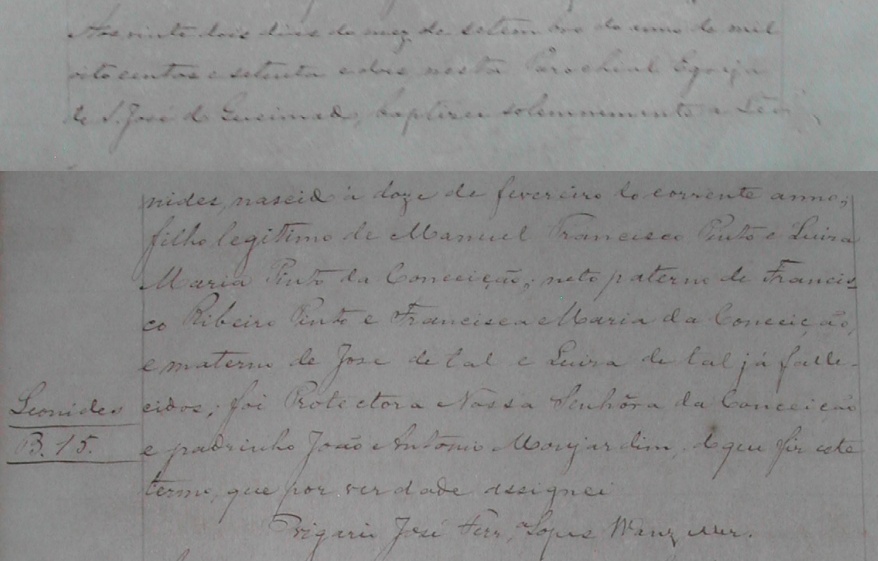 Aos vinte dois dias do mez de setembro do anno de mil
oito centos e setenta e dois nesta Parochial Egreja
de S. José de Queimado, baptizei solemnemente a Leo
nides, nascido à doze de fevereiro do corrente anno,
filho legitimo de Manuel Francisco Pinto e Luiza
Maria Pinto da Conceição; neto paterno de Francis
co Ribeiro Pinto e Francisca Maria da Conceição,
e materno de Jose de tal e Luiza de tal já falle-
cidos; foi Protectora Nossa Senhôra da Conceição
e padrinho João Antonio Monjardim, do que fiz este
termo, que por verdade assignei
Vigario José Ferr.ª Lopes Wanzeller.
Leonides
B. 15.